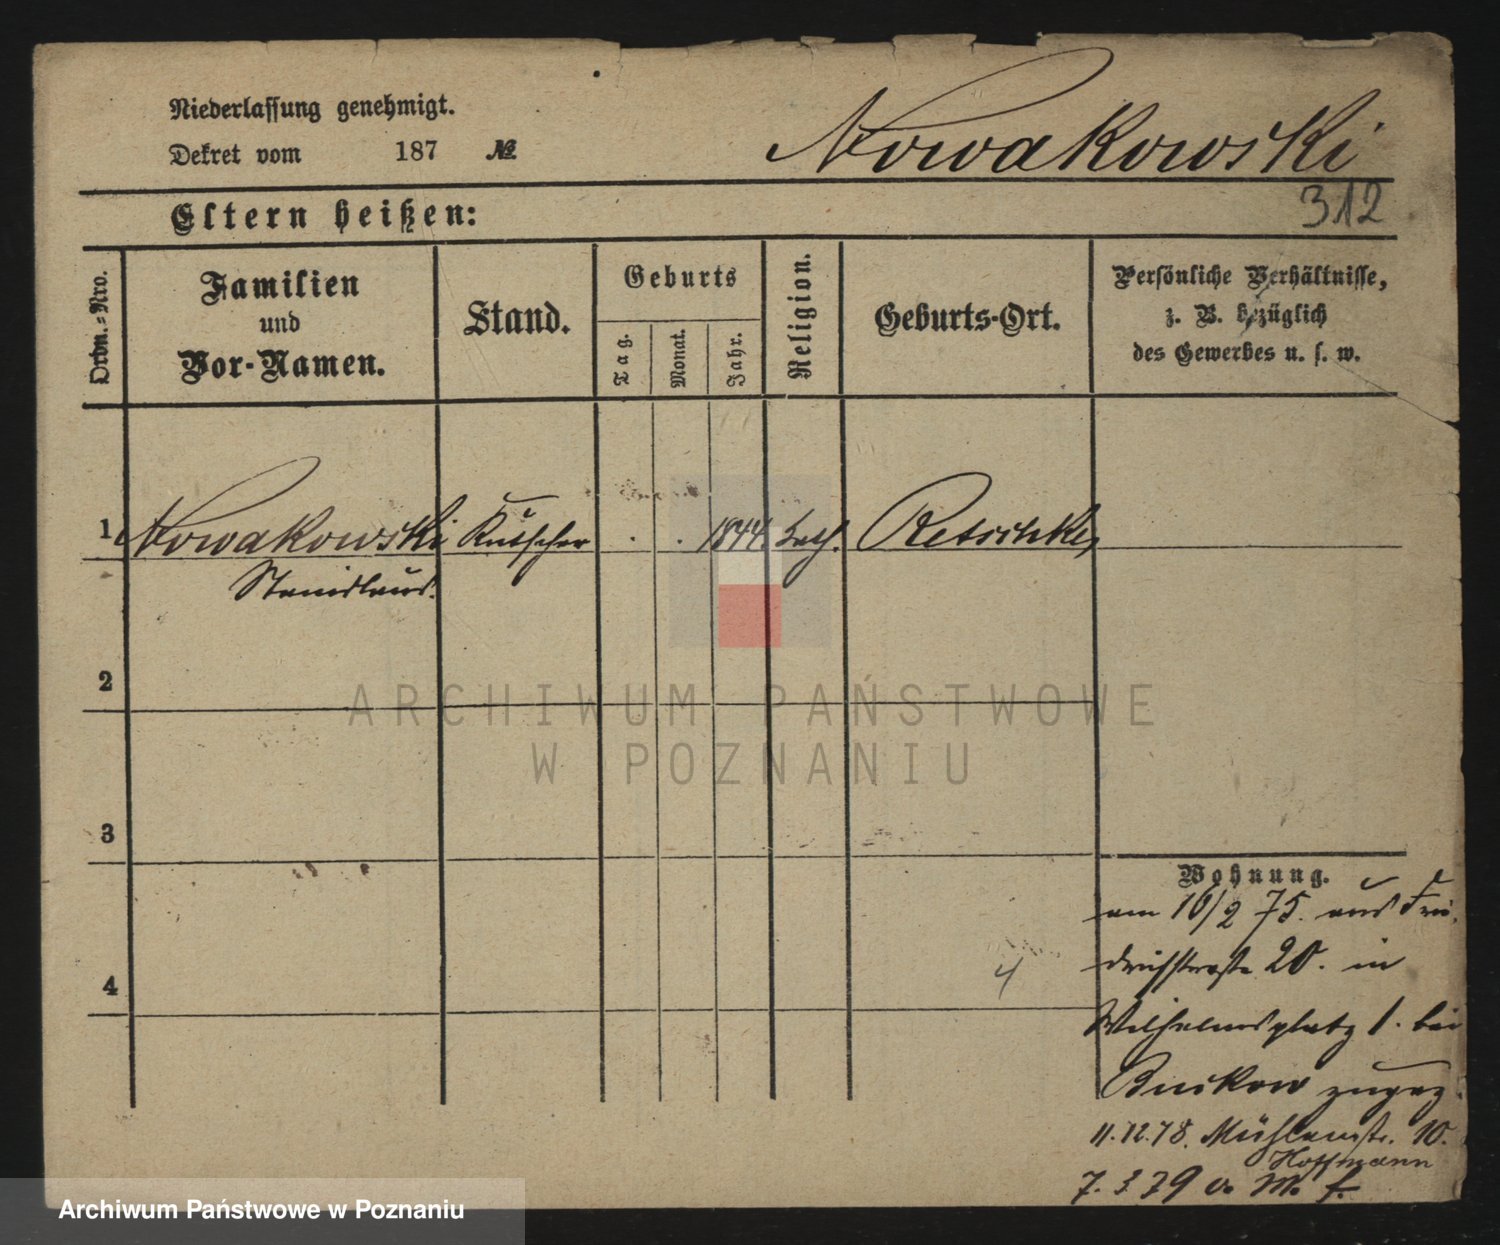 Niederlassung genehmigt.
Dekret vom 187 №
Nowakowski
312
Eltern heißen:
Ordn.-Nro.
Familien
und
Vor-Namen.
Stand.
Geburts
Tag.
Monat.
Jahr.
Religion.
Geburts-Ort.
Persönliche Verhältnisse,
z. B. bezüglich
des Gewerbes u. s. w.
1 Nowakowski Kutscher . . 1844. kath. Retschke,
Stanislaus.
2
ARCHIWUM PAŃSTWOWE
W POZNANIU
3
Wohnung.
am 16/2 75. aus Frie-
drichstraße 20. in
4
4
Wilhelmsplatz 1. bei
zugez.
11.12.78. Mühlenstr. 10.
Hoffmann
7. 3 79 v. M. f.
Archiwum Państwowe w Poznaniu